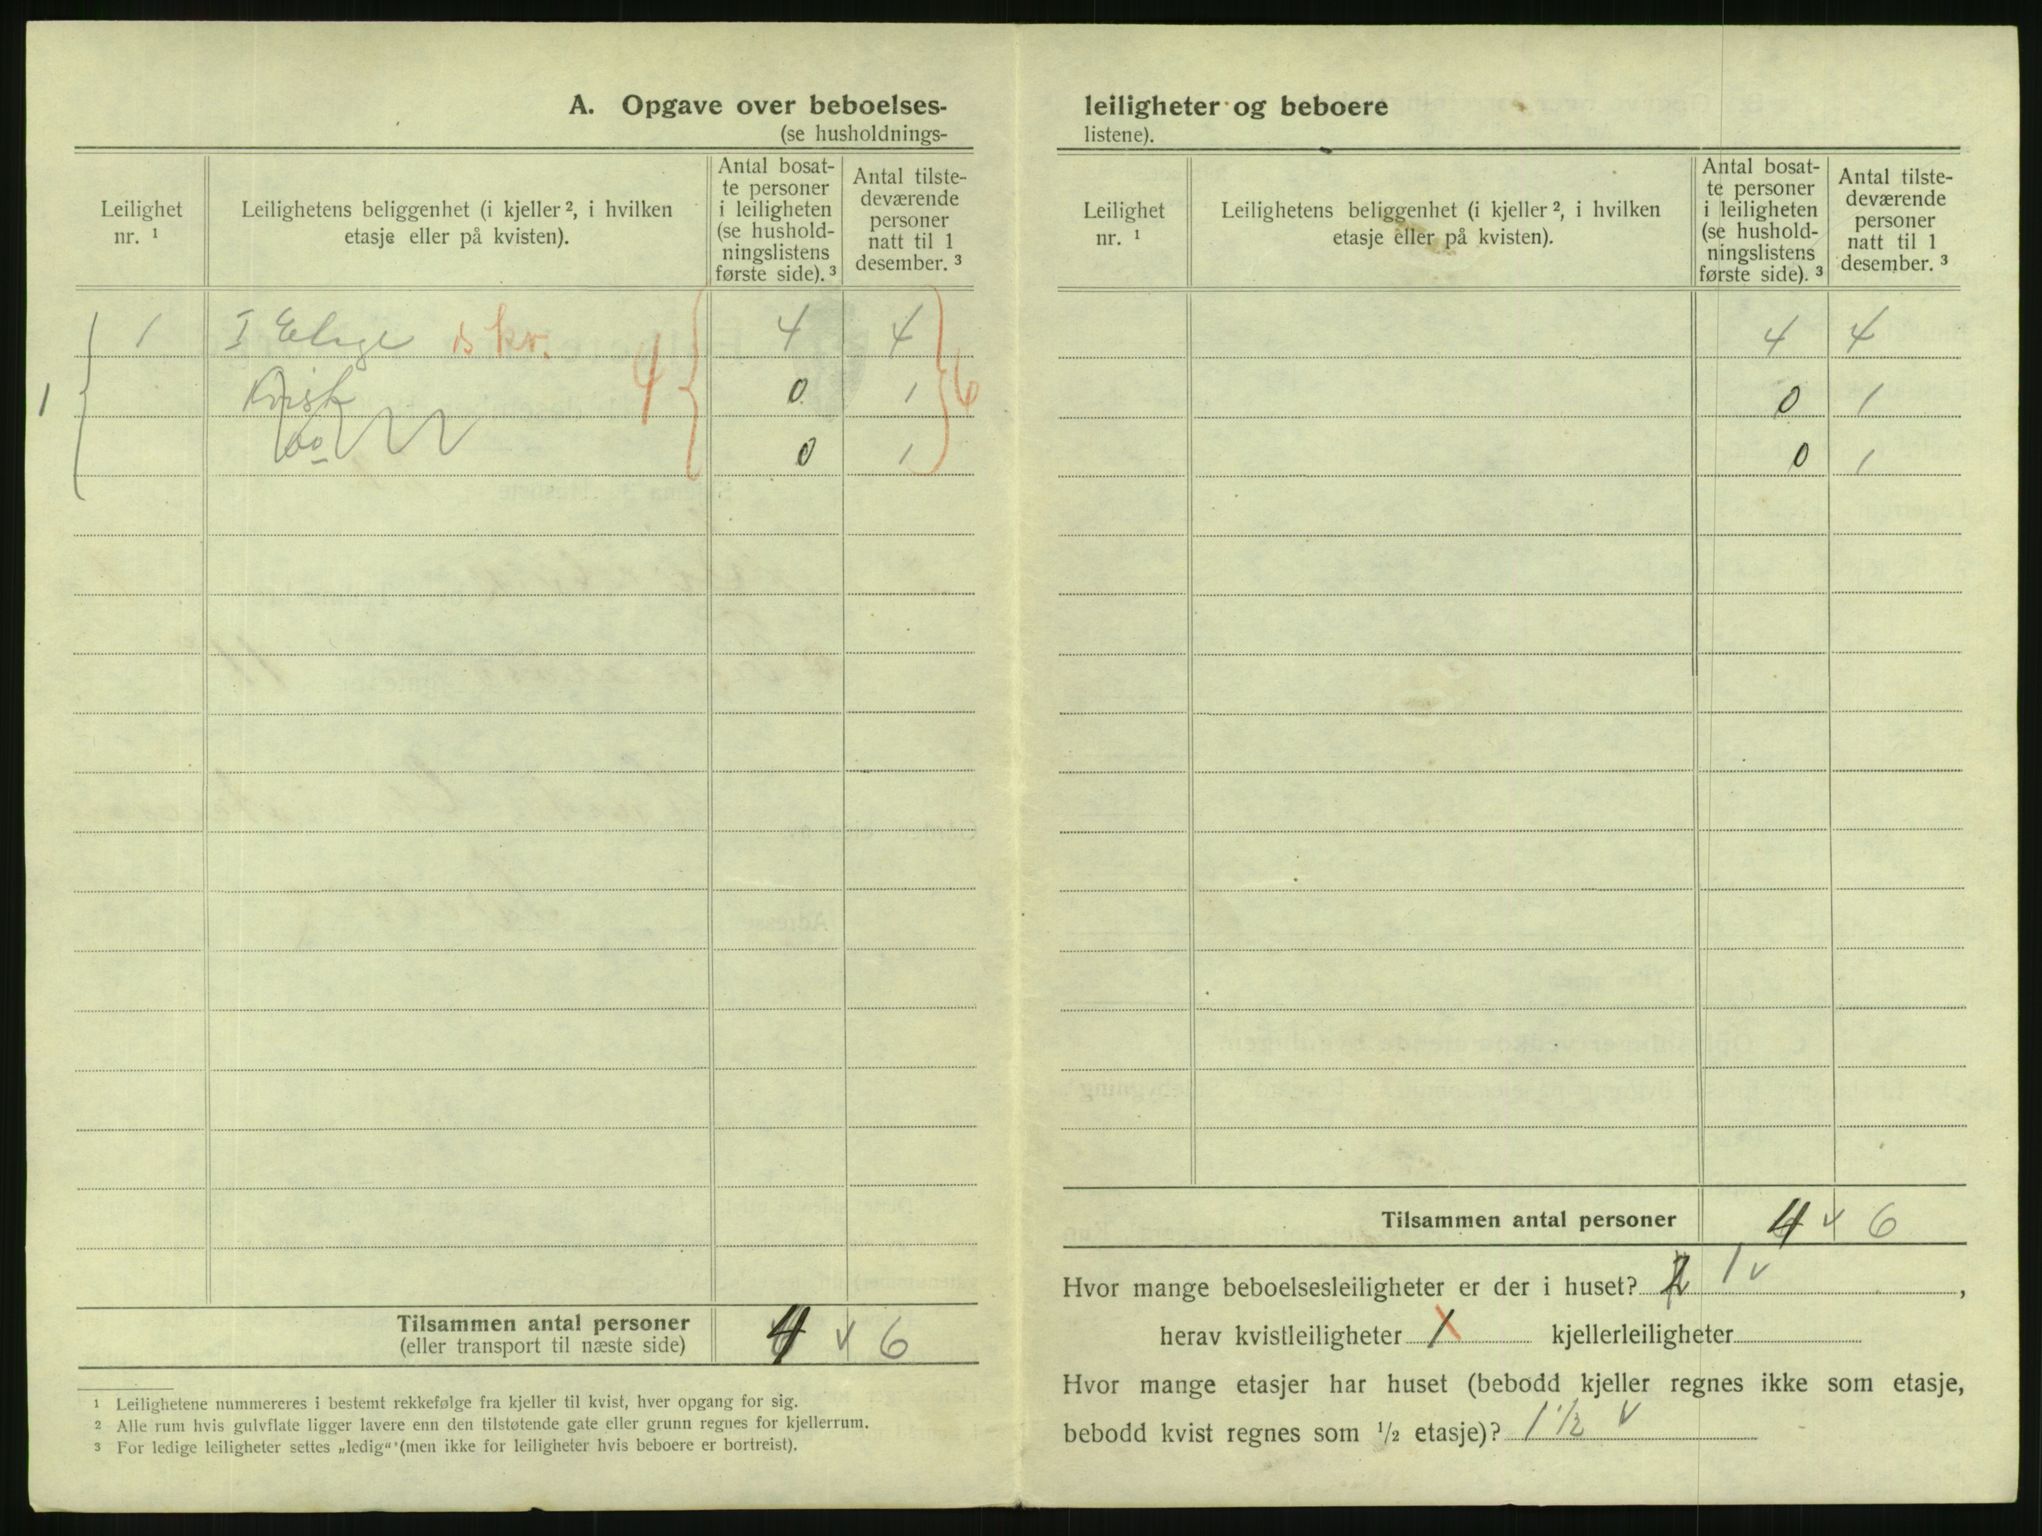 A. Opgave over beboelses-
(se husholdnings-
Leilighet nr. ¹
Leilighetens beliggenhet (i kjeller ², i hvilken etasje eller på kvisten).
Antal bosat-
te personer
i leiligheten
(se hushold-
ningslistens
første side). ³
Antal tilste-
deværende
personer
natt til 1
desember. ³
1 I Etage kv. 4 4
1 Kvist 4 0 1 6
do 0 1
Tilsammen antal personer 4 v 6
(eller transport til næste side)
¹ Leilighetene nummereres i bestemt rekkefølge fra kjeller til kvist, hver opgang for sig.
² Alle rum hvis gulvflate ligger lavere enn den tilstøtende gate eller grunn regnes for kjellerrum.
³ For ledige leiligheter settes „ledig“ (men ikke for leiligheter hvis beboere er bortreist).
leiligheter og beboere
listene).
Leilighet nr. ¹
Leilighetens beliggenhet (i kjeller ², i hvilken etasje eller på kvisten).
Antal bosat-
te personer
i leiligheten
(se hushold-
ningslistens
første side). ³
Antal tilste-
deværende
personer
natt til 1
desember. ³
4 4
0 1
0 1
Tilsammen antal personer 4 v 6
Hvor mange beboelsesleiligheter er der i huset? 2 1 v ,
herav kvistleiligheter 1 kjellerleiligheter
Hvor mange etasjer har huset (bebodd kjeller regnes ikke som etasje,
bebodd kvist regnes som ½ etasje)? 1 ½ v